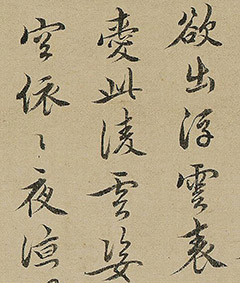 欲出浮雲表
愛此凌雲姿
空依〻夜